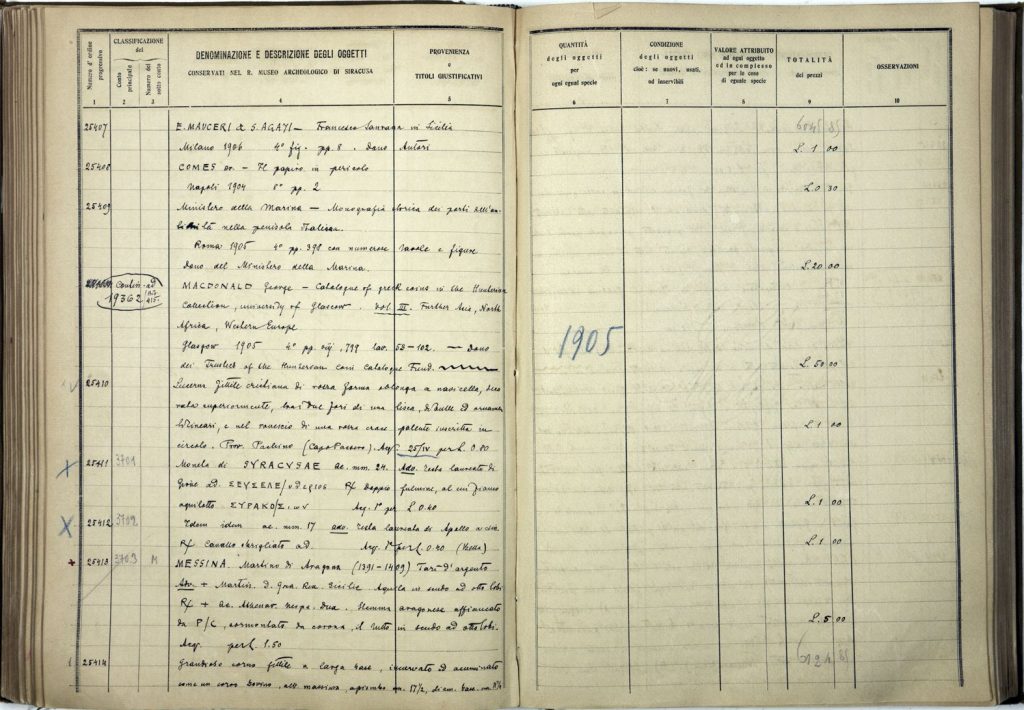 Numero d'ordine progressivo
CLASSIFICAZIONE del
Conto principale
Numero del sotto conto
DENOMINAZIONE E DESCRIZIONE DEGLI OGGETTI
CONSERVATI NEL R. MUSEO ARCHEOLOGICO DI SIRACUSA
PROVENIENZA e TITOLI GIUSTIFICATIVI
1 2 3 4 5
QUANTITÀ degli oggetti per ogni egual specie
CONDIZIONE degli oggetti cioè: se nuovi, usati, od inservibili
VALORE ATTRIBUITO ad ogni oggetto ed in complesso per le cose di eguale specie
TOTALITÀ dei prezzi
OSSERVAZIONI
6 7 8 9 10
6045 85
25407 E. MAUCERI & S. AGATI — Francesco Laurana in Sicilia
Milano 1906 4° fig. pp. 8. Dono Autori L. 1 00
25408 COMES O. — Il papiro in pericolo
Napoli 1904 8° pp. 2 L. 0 30
25409 Ministero della Marina — Monografia storica dei porti dell'an-
tichità nella penisola Italiana
Roma 1905 4° pp. 398 con numerose tavole e figure
Dono del Ministero della Marina. L. 20 00
19362 MACDONALD George — Catalogue of greek coins in the Hunterian
Collection, university of Glascow. vol. III. Further Asia, North
Africa, Western Europe
Glasgow 1905 4° pp. 799 tav. 63–102. — Dono
dei Trustees of the Hunterean coin Catalogue Fund. L. 50 00
1905
25410 Lucerna fittile cristiana di forma oblonga a navicella,
superiormente, tra i due fori di una lisca, di bulle ed
bilineari, e nel rovescio di una croce patente inscritta in L. 1 00
circolo. Prov. Pachino (Capo Passero). Acq. 25/IV per L. 0.80
X 25411 3701 Moneta di SYRACUSAE ae. mm. 24. Ad. Testa laureata di
Giove ad. Rf Doppio fulmine, al cui fianco
aquilotto ΣΥΡΑΚΟ/ΣΙΩΝ Acq. 1° per L. 0.40 L. 1 00
X 25412 3702 Idem idem ae. mm. 17 ad. Testa laureata di Apollo a sin.
Rf Cavallo sbrigliato ad. Acq. 1° per L. 0.40 L. 1 00
+ 25413 3703 M MESSINA. Martino di Aragona (1391–1409) Tarì d'argento
Ad. + Martin. D. Gra. Rex. Sicilie Aquila in scudo ad otto lobi
Rf + Ac. Athenar. Neopa. Dux. Stemma aragonese affiancato
da P/C, sormontato da corona, il tutto in scudo ad otto lobi. L. 5 00
Acq. per L. 1.50
25414 Grandioso corno fittile a larga base, incurvato ed acuminato
come un corno bovino, alt. massima
6124 85